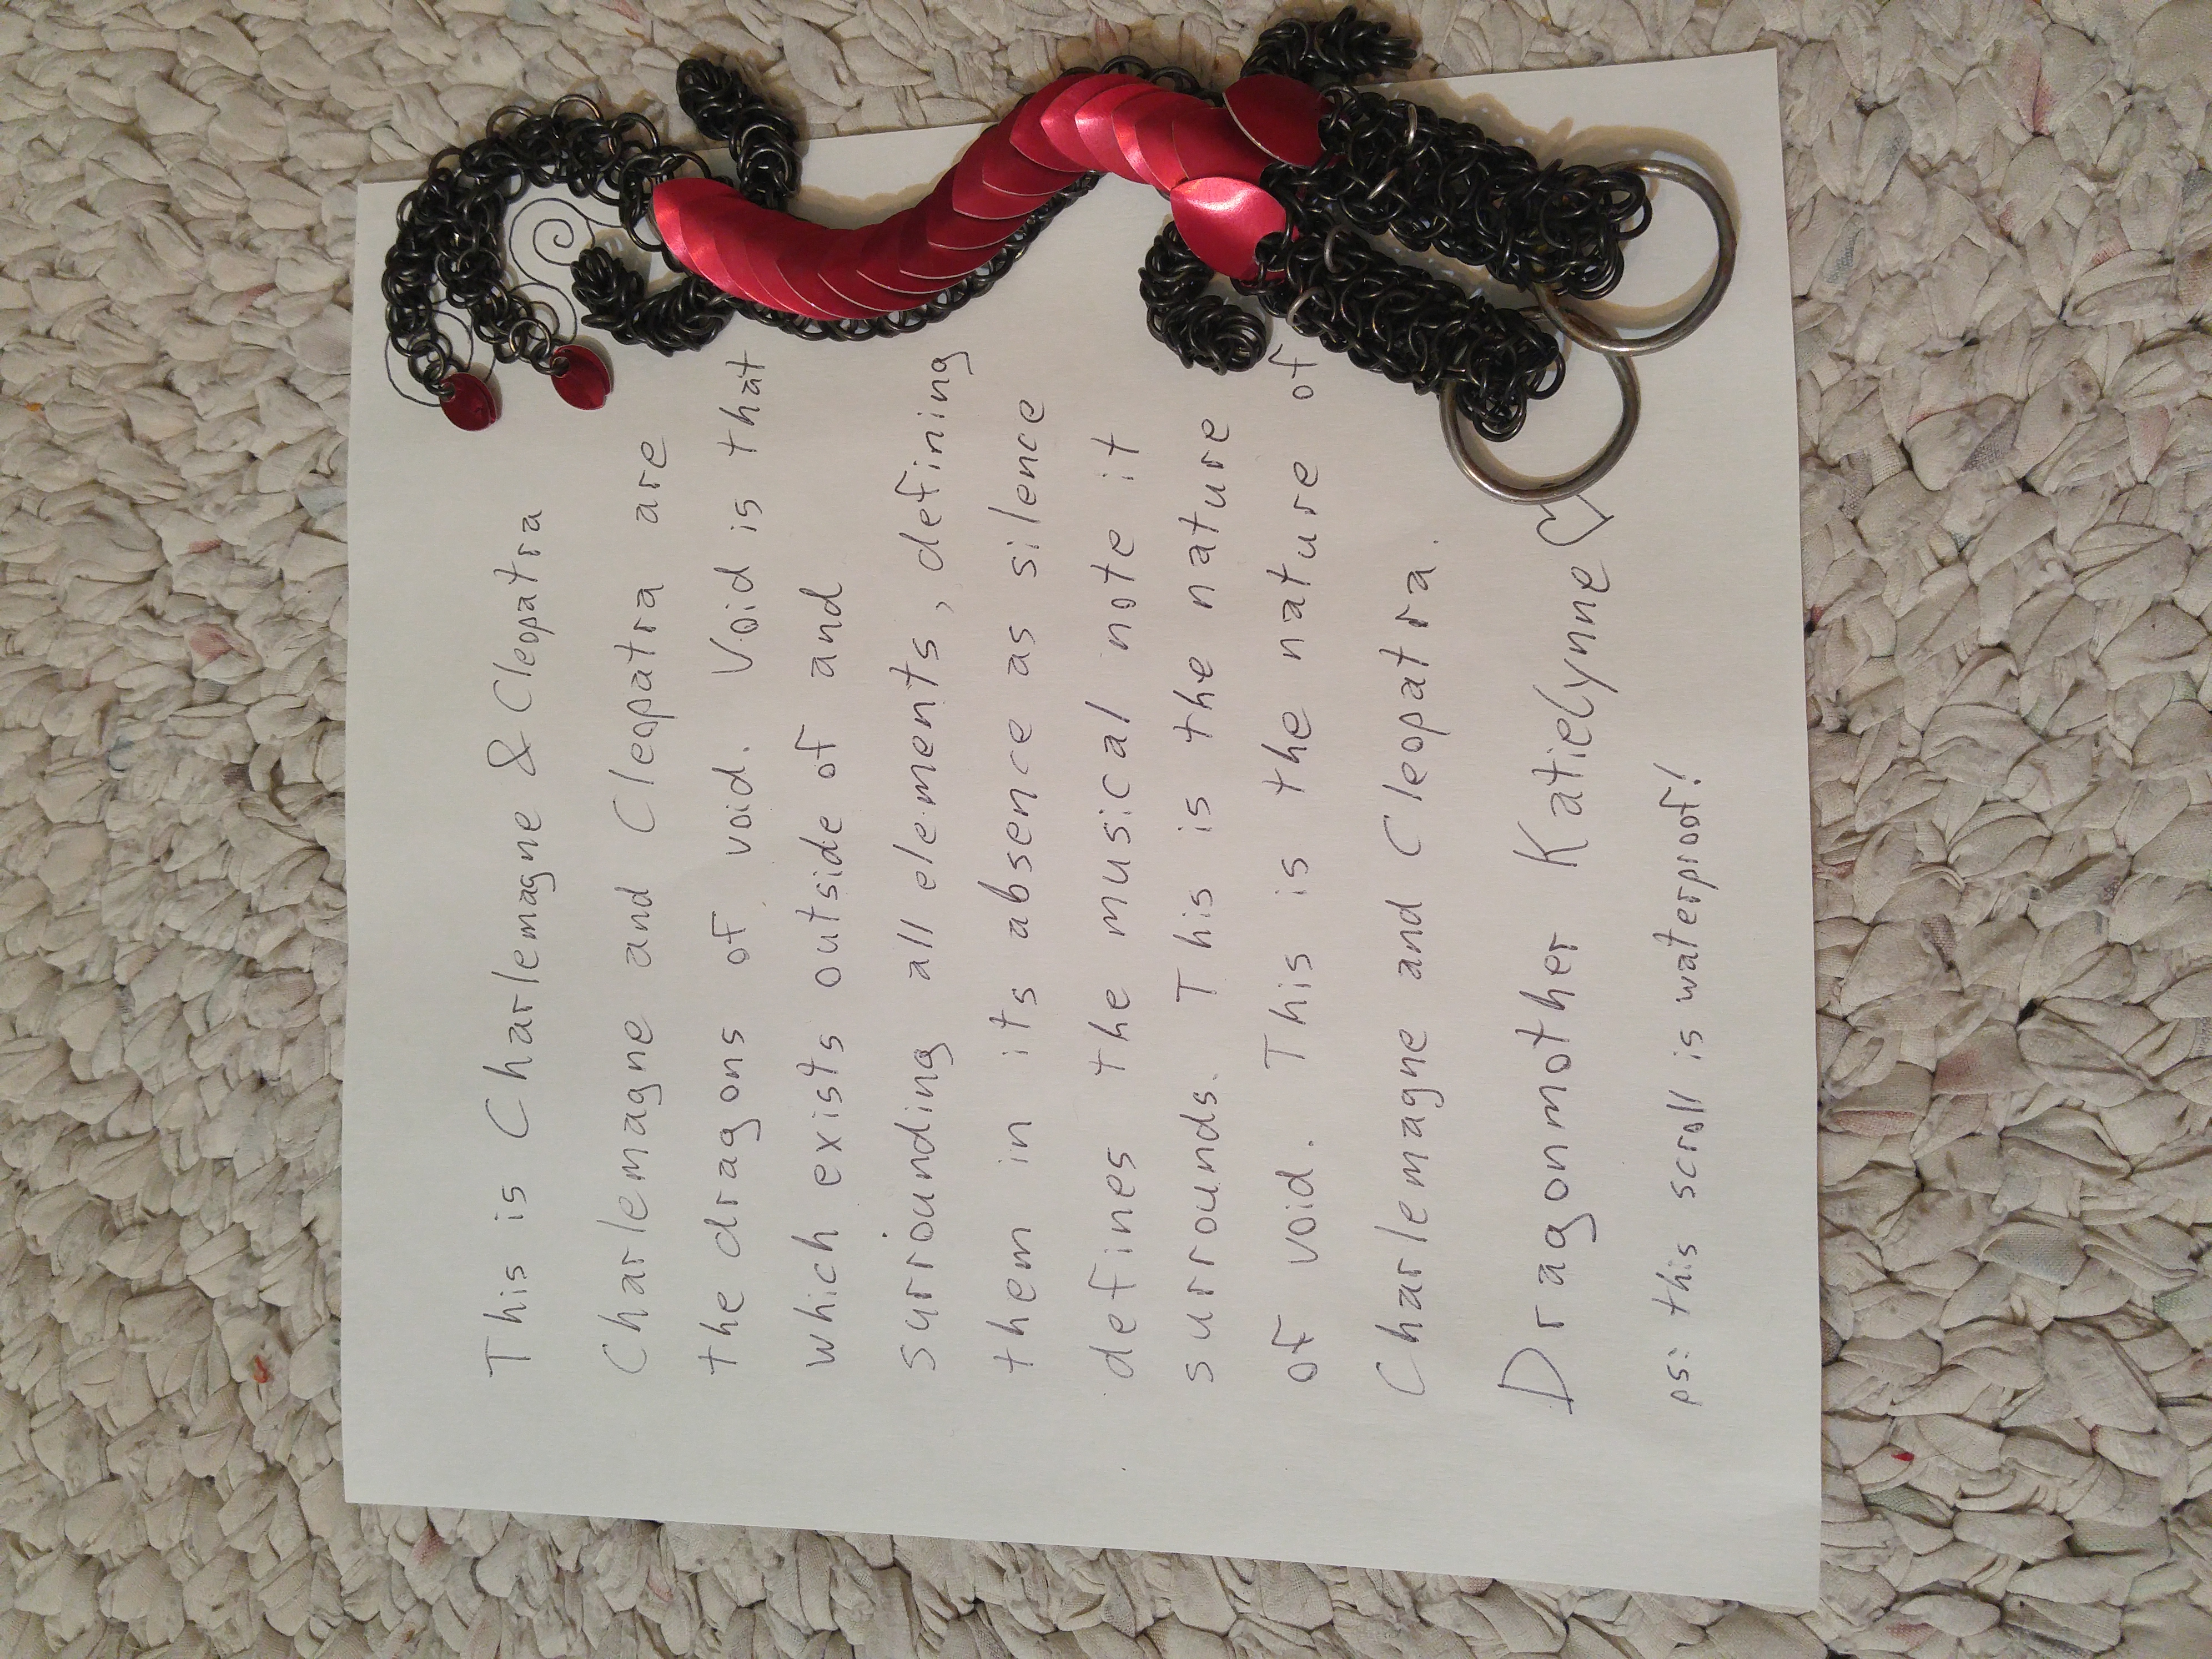 This is Charlemagne & Cleopatra
Charlemagne and Cleopatra are
the dragons of void. Void is that
which exists outside of and
surrounding all elements, defining
them in its absence as silence
defines the musical note it
surrounds. This is the nature
of void. This is the nature of
Charlemagne and Cleopatra.
Dragonmother Katielynne♡
ps: this scroll is waterproof!